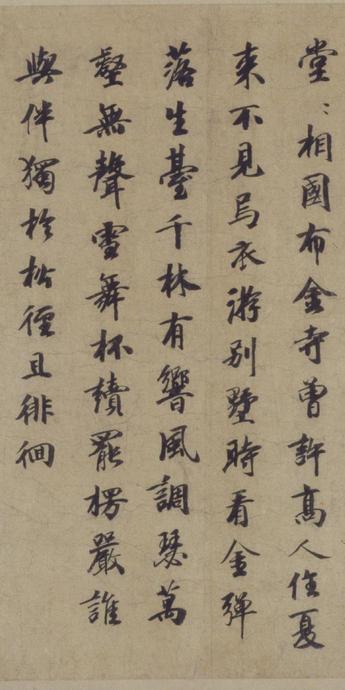 堂〻相國布金寺曾許高人住夏
來不見烏衣游别墅時看金彈
落生臺千林有響風調瑟萬
壑無聲雪舞杯續罷楞嚴誰
與伴獨於松徑且徘徊